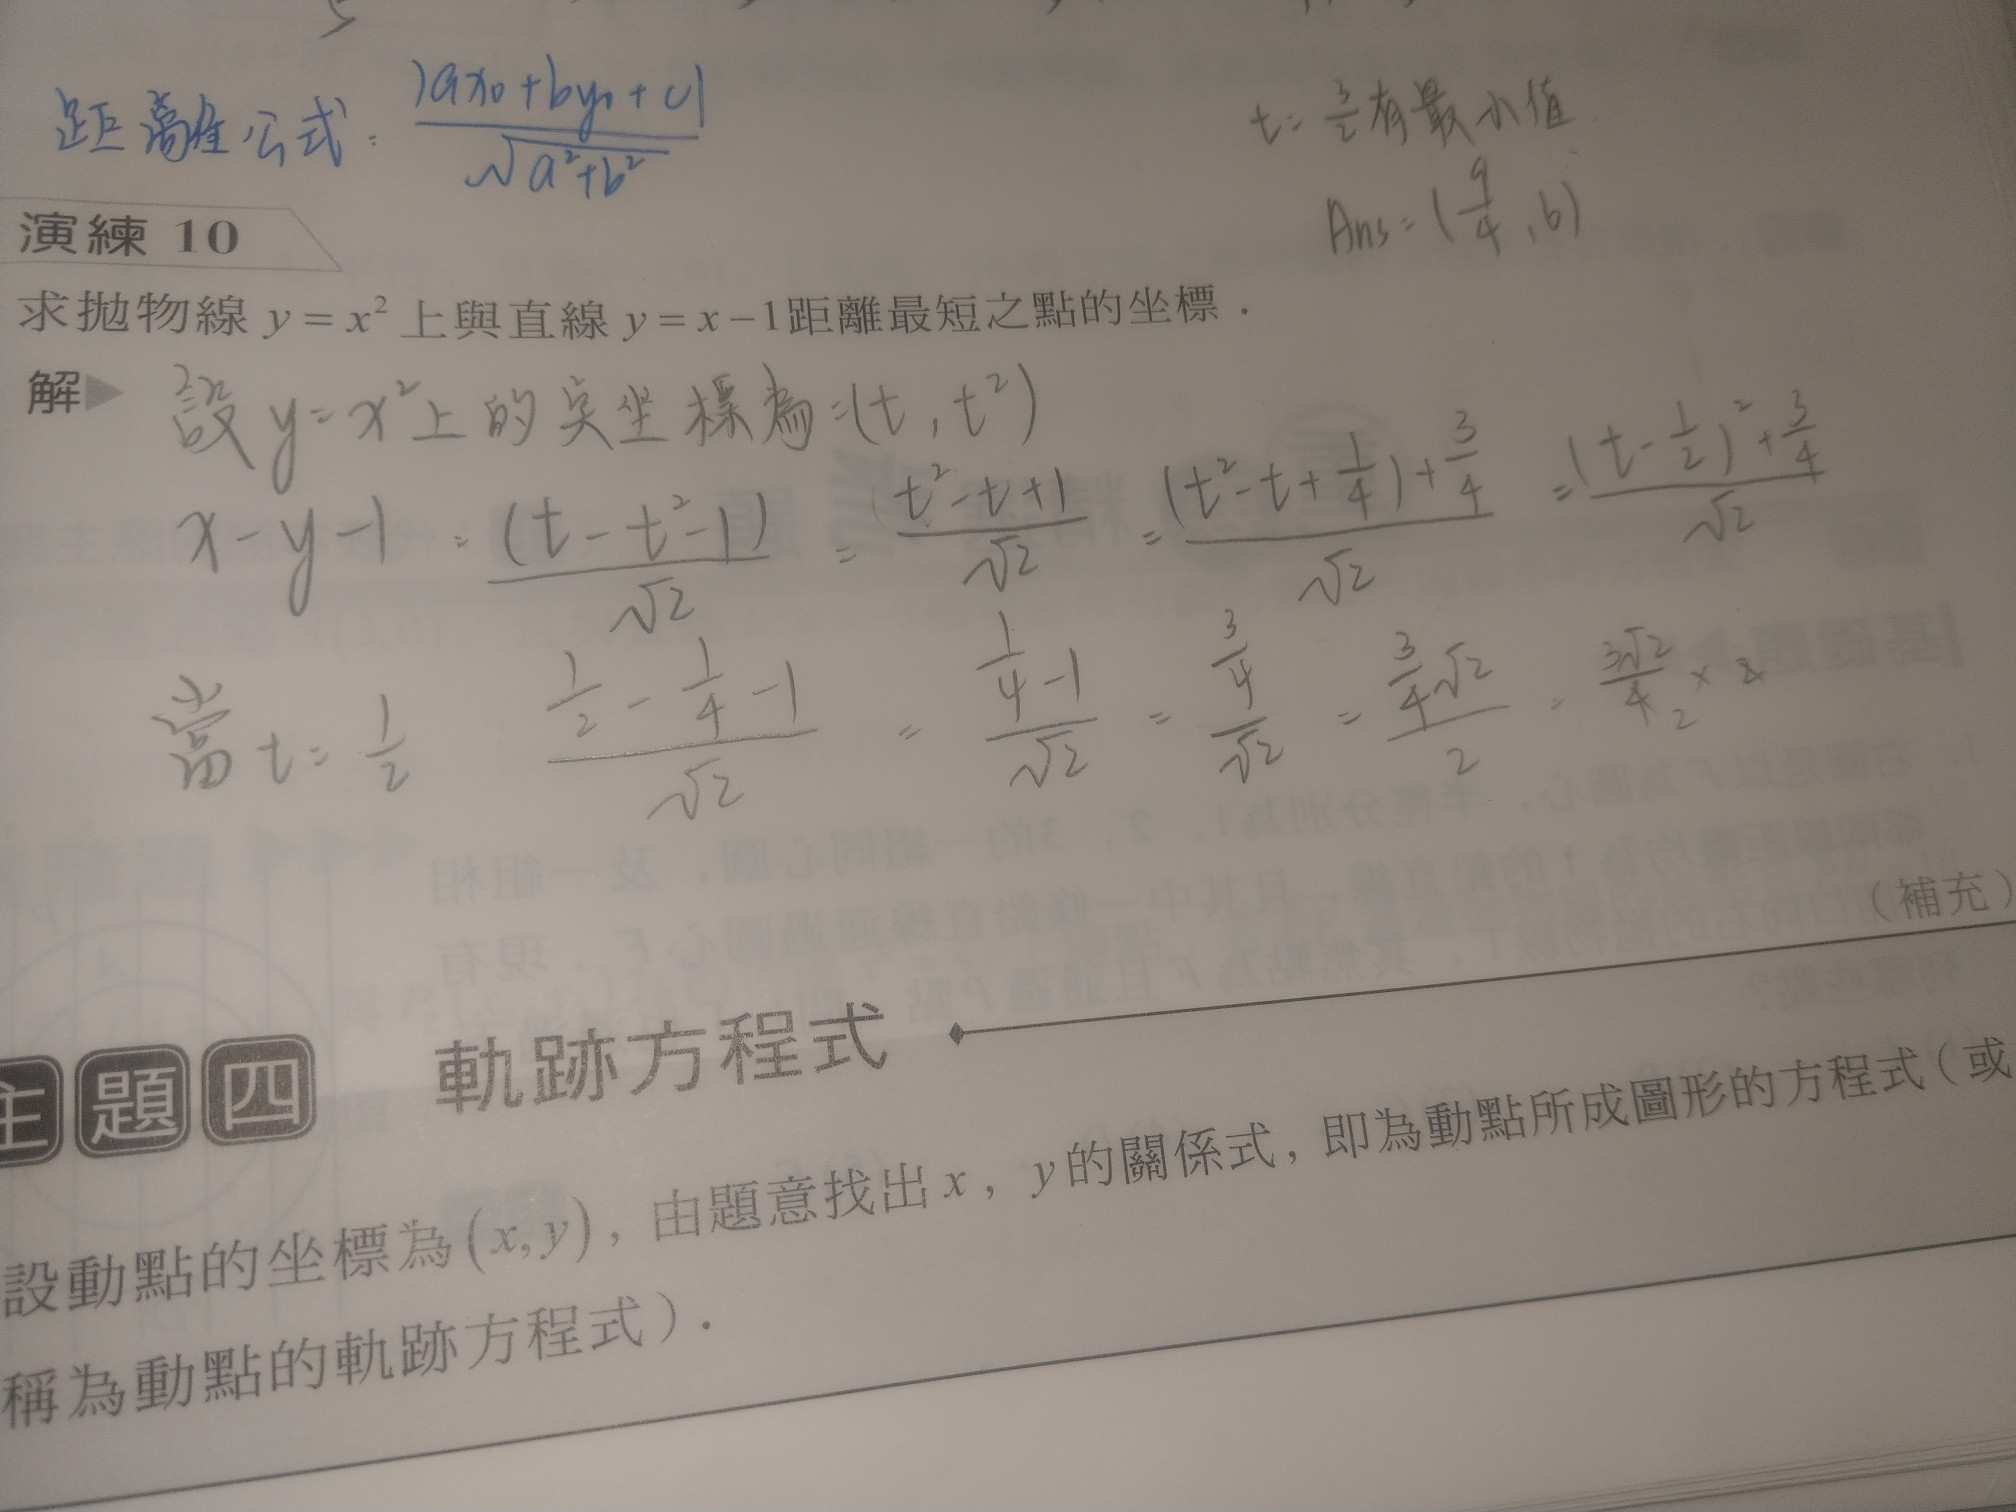 距離公式: |ax₀+by₀+c| / √(a²+b²)
t=3/2有最小值
Ans=(9/4, 6)
演練 10
求拋物線 y=x² 上與直線 y=x−1距離最短之點的坐標.
解▶ 設y=x²上的点坐標為=(t, t²)
x-y-1 = (t-t²-1)/√2 = (t²-t+1)/√2 = ((t²-t+1/4)+3/4)/√2 = ((t-1/2)²+3/4)/√2
當t=1/2 (1/2-1/4-1)/√2 = (1/4-1)/√2 = (3/4)/√2 = (3/4√2)/2 = 3√2/4 ×
(補充)
主題四 軌跡方程式
設動點的坐標為(x,y), 由題意找出x, y的關係式, 即為動點所成圖形的方程式(或
稱為動點的軌跡方程式).